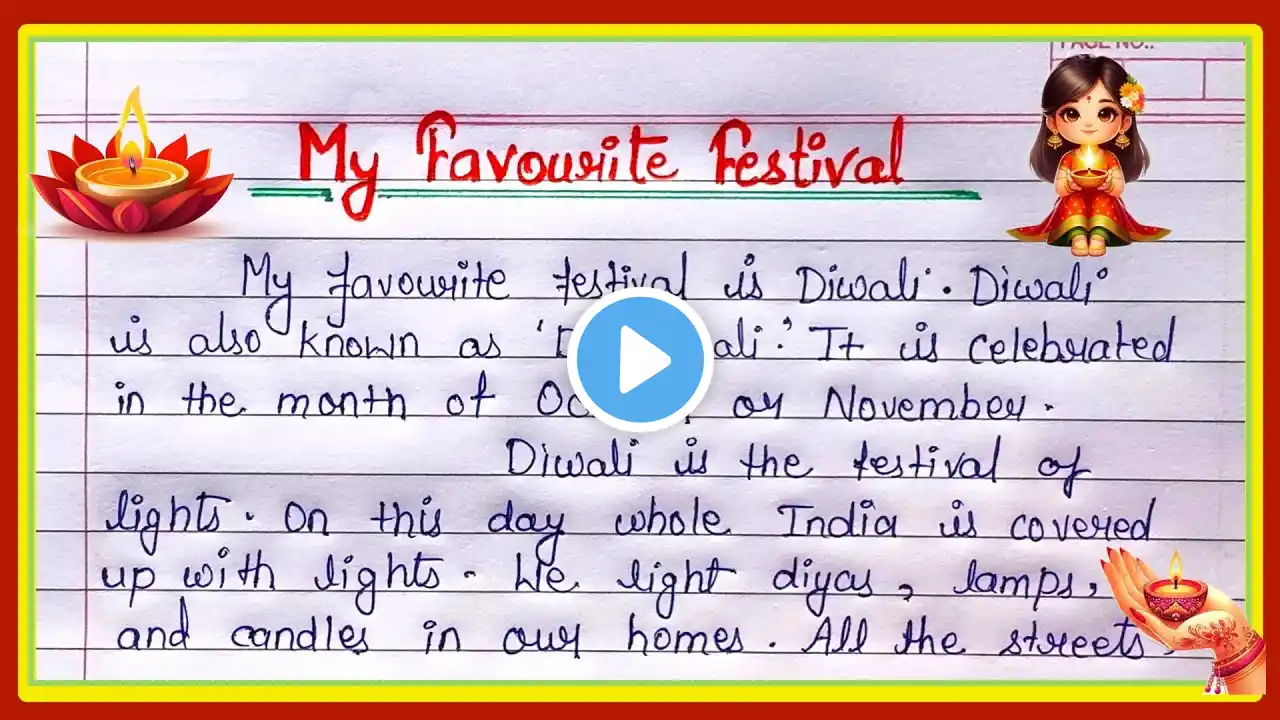 PAGE NO.:
My Favourite Festival
My favourite festival is Diwali. Diwali
is also known as ' ali.' It is celebrated
in the month of or November.
Diwali is the festival of
lights. On this day whole India is covered
up with lights. We light diyas, lamps,
and candles in our homes. All the streets